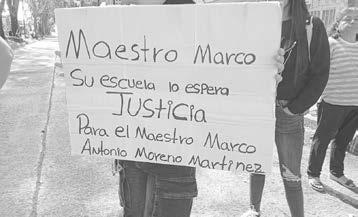 Maestro Marco
Su escuela lo espera
JUSTICIA
Para el Maestro Marco
Antonio Moreno Martinez